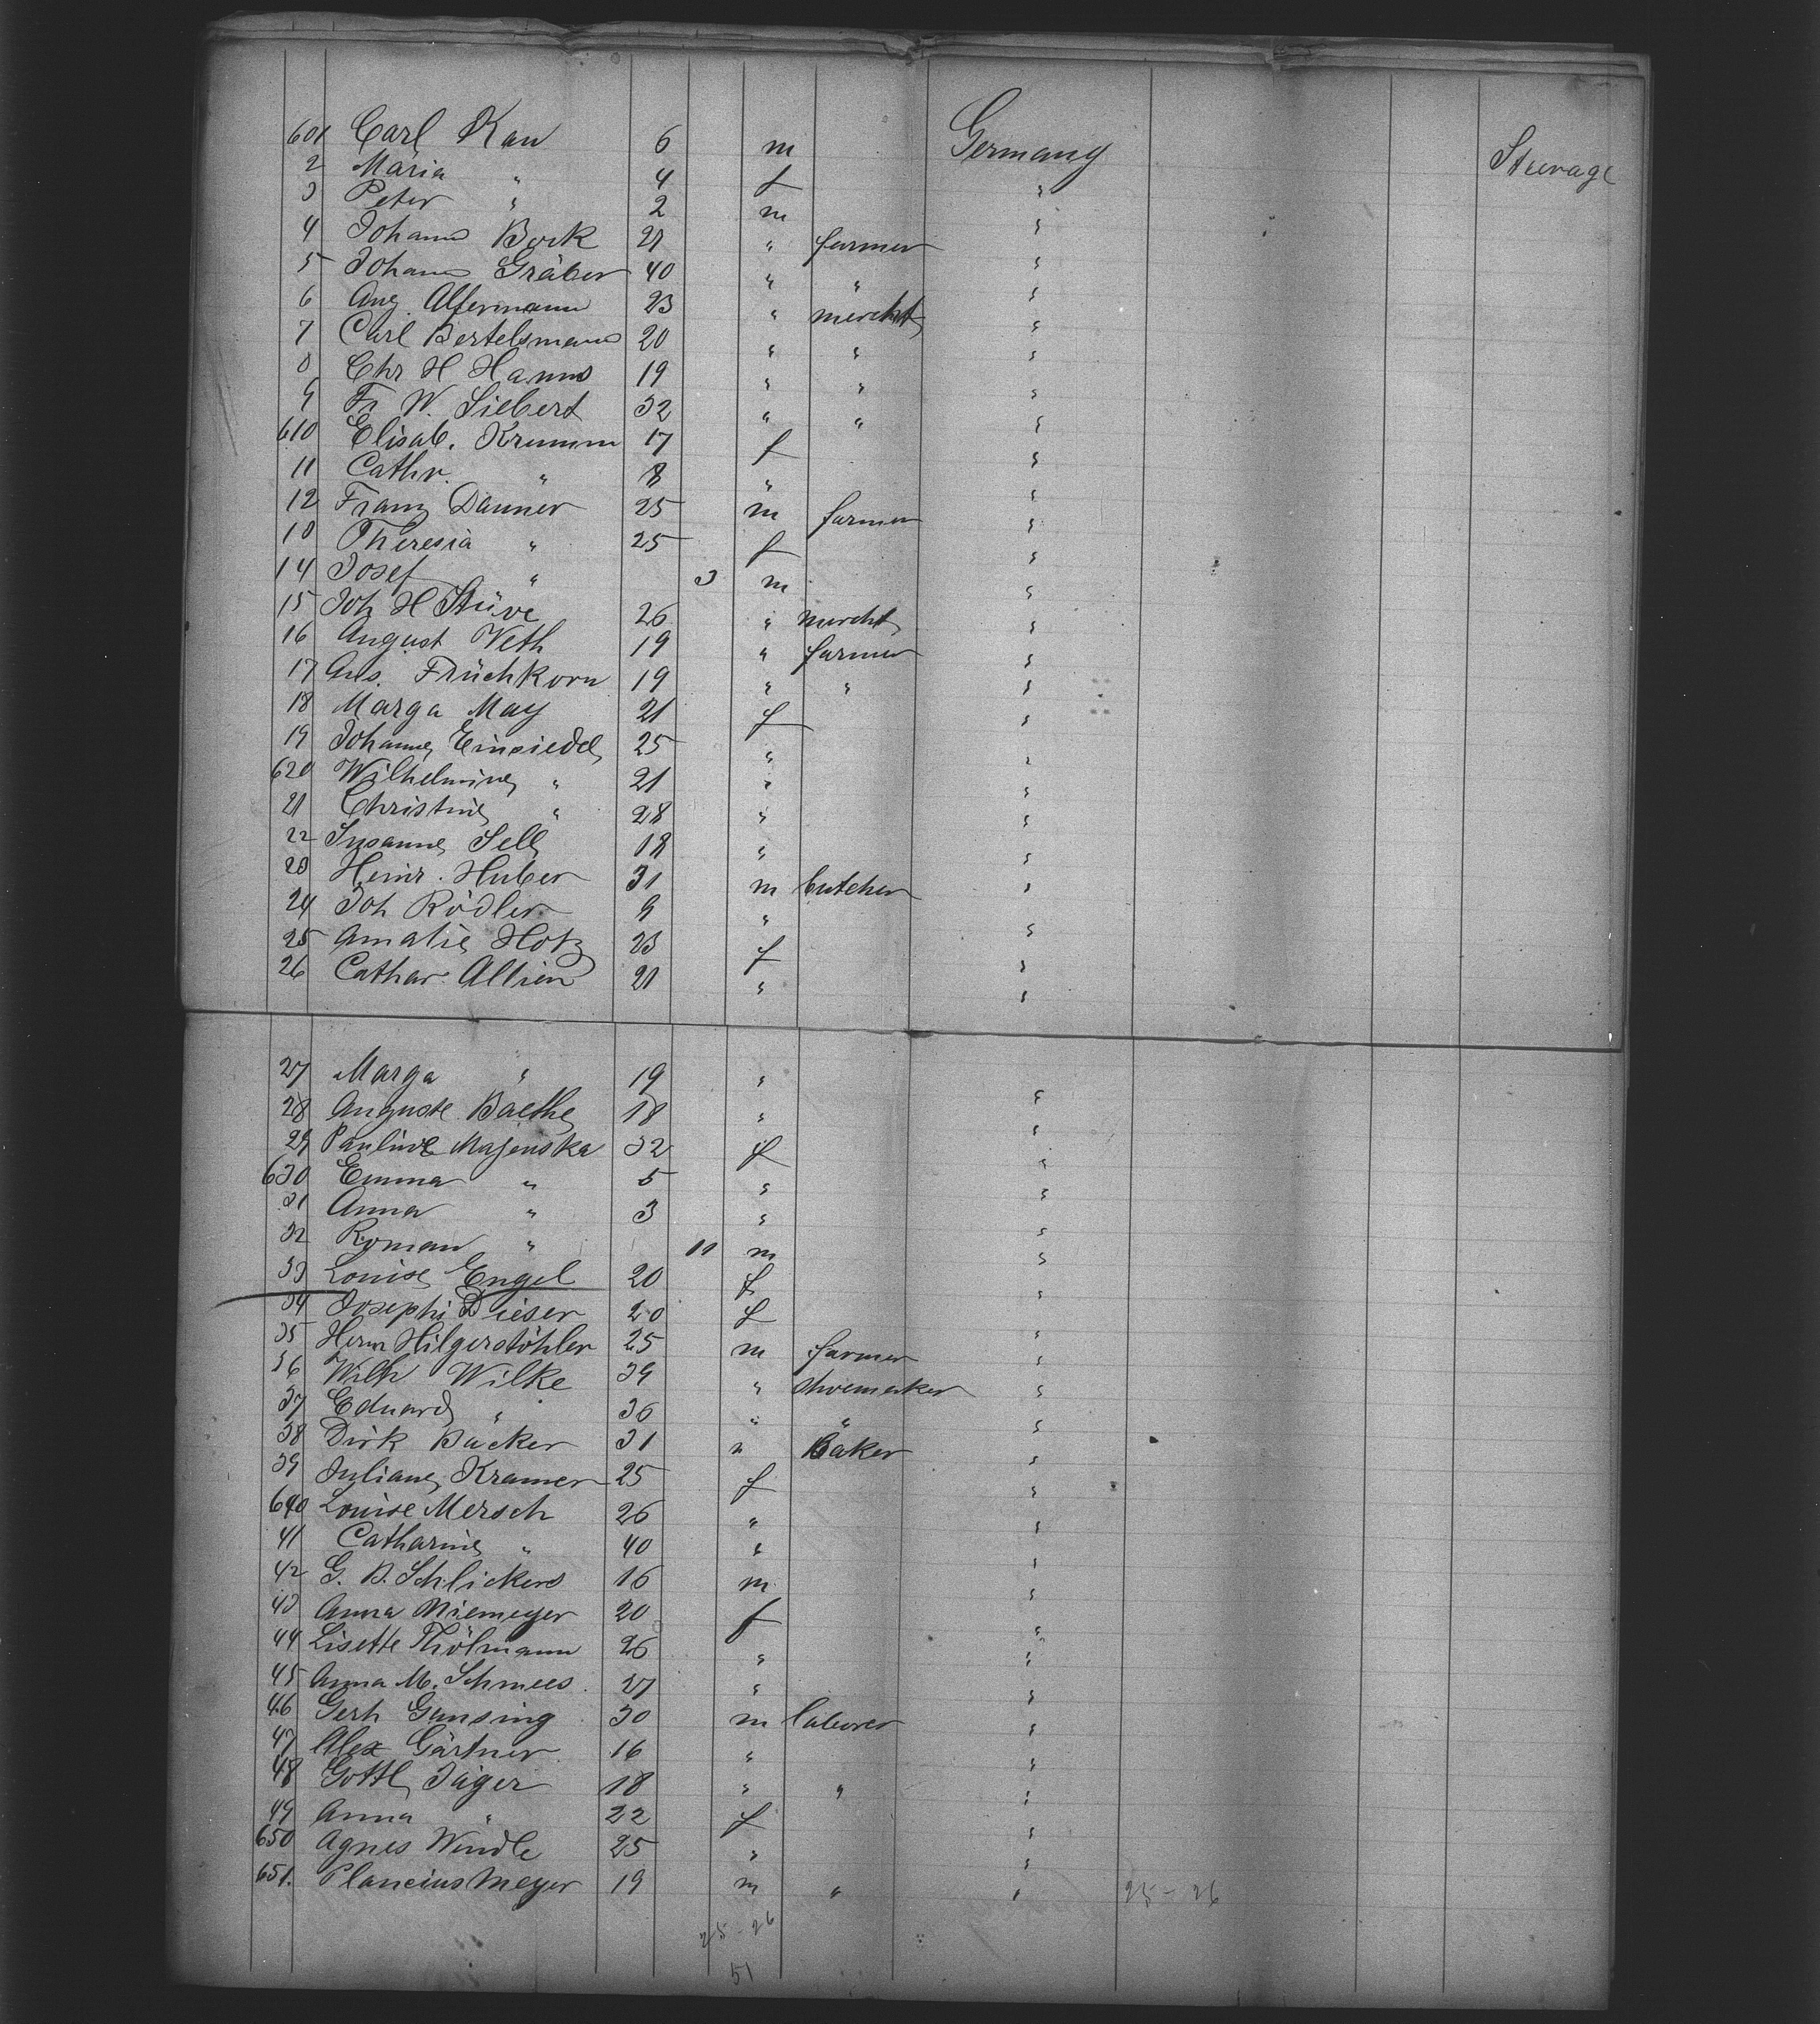 601 Carl Kau 6 m Germany Steerage
2 Maria " 4 f "
3 Peter " 2 m "
4 Johann Bock 21 " farmer "
5 Johann Gräber 40 " " "
6 Aug. Alfermann 23 " mercht "
7 Carl Bertelsmann 20 " " "
8 Chr H Harms 19 " " "
9 Fr. W. Siebert 32 " " "
610 Elisab. Krumm 17 f "
11 Cathr. " 8 " "
12 Franz Danner 25 m farmer "
13 Theresia " 25 f "
14 Josef " 3 m "
15 Joh H Stüve 26 " mercht "
16 August Veth 19 " farmer "
17 Früchkorn 19 " " "
18 Marga May 21 f "
19 Johanne Einsiedel 25 " "
620 Wilhelmine " 21 " "
21 Christine " 28 " "
22 Susanne Sell 18 " "
23 Heinr. Huber 31 m butcher "
24 Joh Rödler 9 " "
25 Amalie Hotz 23 f "
26 Cathar. Altien 21 " "
27 Marga " 19 " "
28 Auguste Baethe 18 " "
29 Pauline Majenska 32 f "
630 Emma " 5 " "
31 Anna " 3 " "
32 Roman " 11 m "
33 Louise Engel 20 f "
34 Josephi Dieser 20 f "
35 Herm Hilgerstöhler 25 m farmer "
36 Wilh Wilke 39 " shoemaker "
37 Eduard " 36 " " "
38 Dirk Backer 31 " Baker "
39 Juliane Kramer 25 f "
640 Louise Mersch 26 " "
41 Catharine " 40 " "
42 G. B. Schlickers 16 m "
43 Anna Niemeyer 20 f "
44 Lisette Thölmann 26 " "
45 Anna M. Schmees 27 " "
46 Gerh Gansing 30 m laborer "
47 Alex Gärtner 16 " "
48 Gottl Jäger 18 " " "
49 Anna " 22 f "
650 Agnes Windle 25 " "
651. Plancius Meyer 19 m " " 25-26
25-26
51